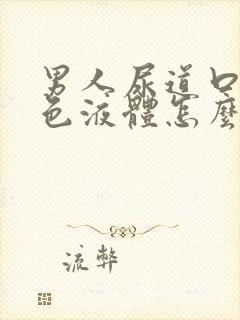 男人尿道口
色液體怎麼
流弊